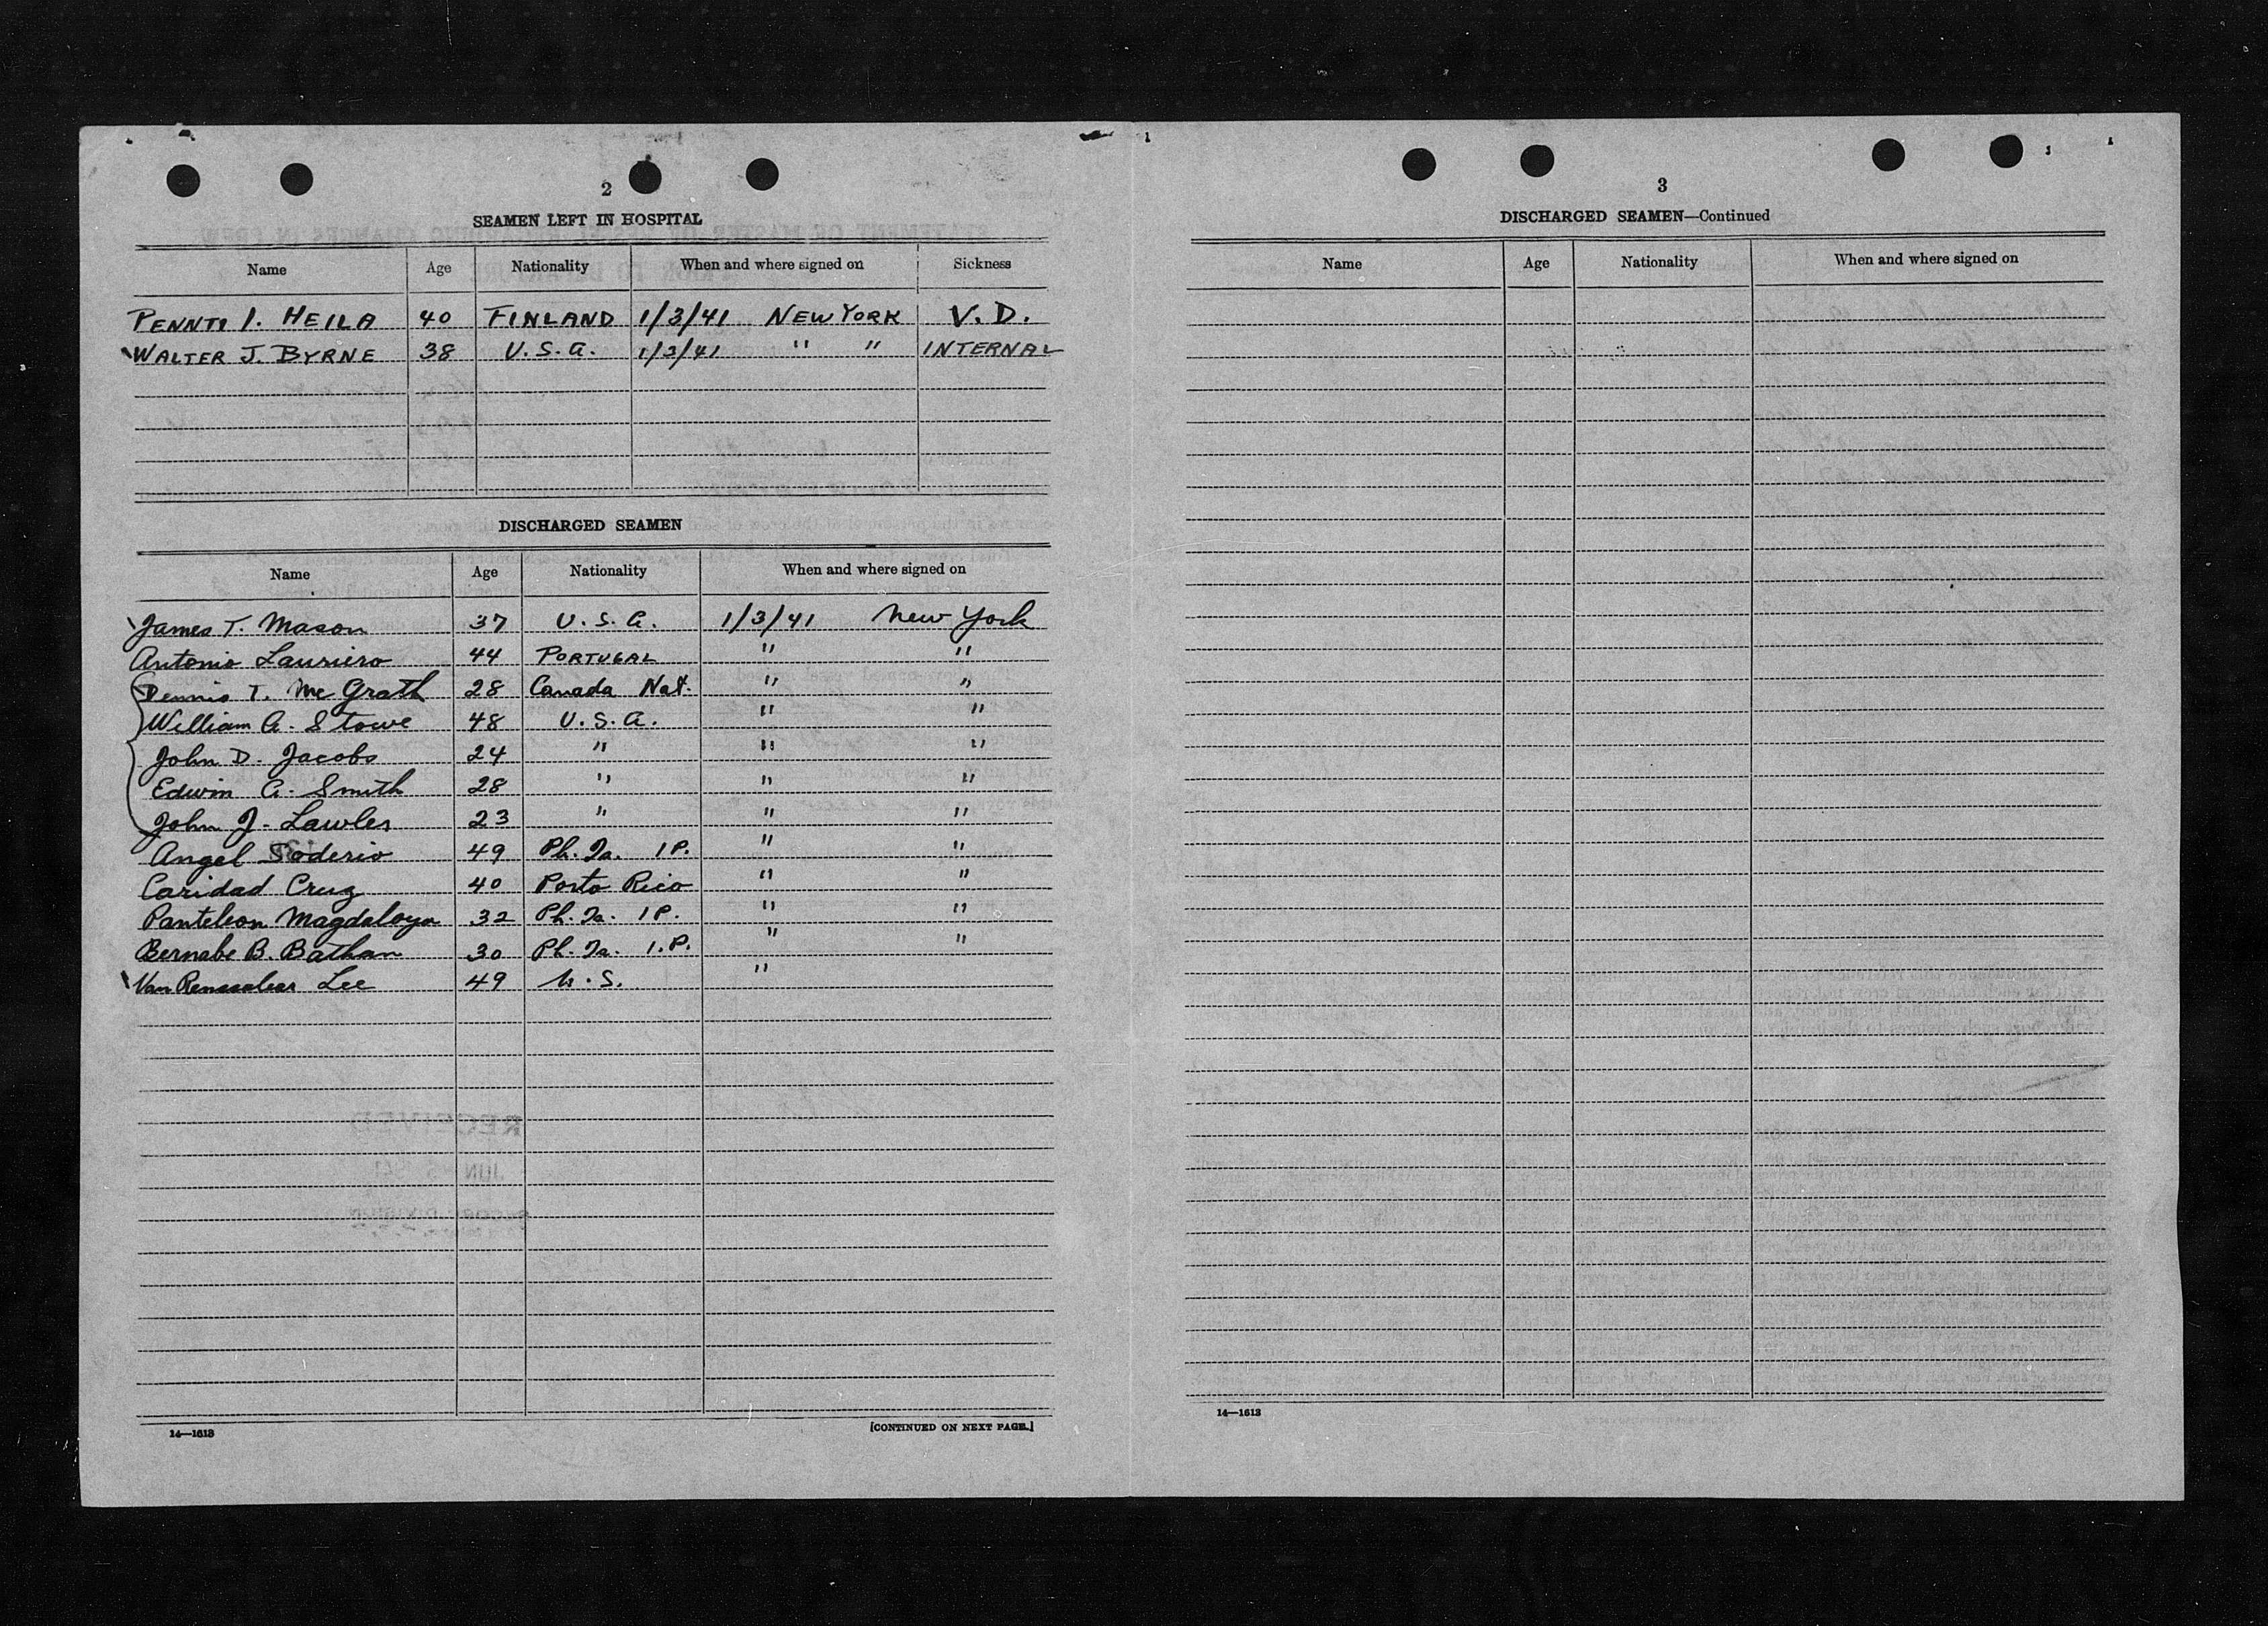 2
SEAMEN LEFT IN HOSPITAL
Name Age Nationality When and where signed on Sickness
PENNTI I. HEILA 40 FINLAND 1/3/41 NEW YORK V.D.
WALTER J. BYRNE 38 U.S.A. 1/3/41 " " INTERNAL
DISCHARGED SEAMEN
Name Age Nationality When and where signed on
James T. Mason 37 U.S.A. 1/3/41 New York
Antonio Lauriero 44 PORTUGAL " "
Dennis T. Mc Grath 28 Canada Nat. " "
William A. Stowe 48 U.S.A. " "
John D. Jacobs 24 " " "
Edwin A. Smith 28 " " "
John J. Lawler 23 " " "
Angel 49 Ph. Is. 1P. " "
Caridad Cruz 40 Porto Rico " "
Panteleon Magdaloyo 32 Ph. Is. 1P. " "
Bernabe B. Bathan 30 Ph. Is. 1.P. " "
Van Renssalear Lee 49 U.S. "
14—1613 [CONTINUED ON NEXT PAGE.]
3
DISCHARGED SEAMEN—Continued
Name Age Nationality When and where signed on
14—1613